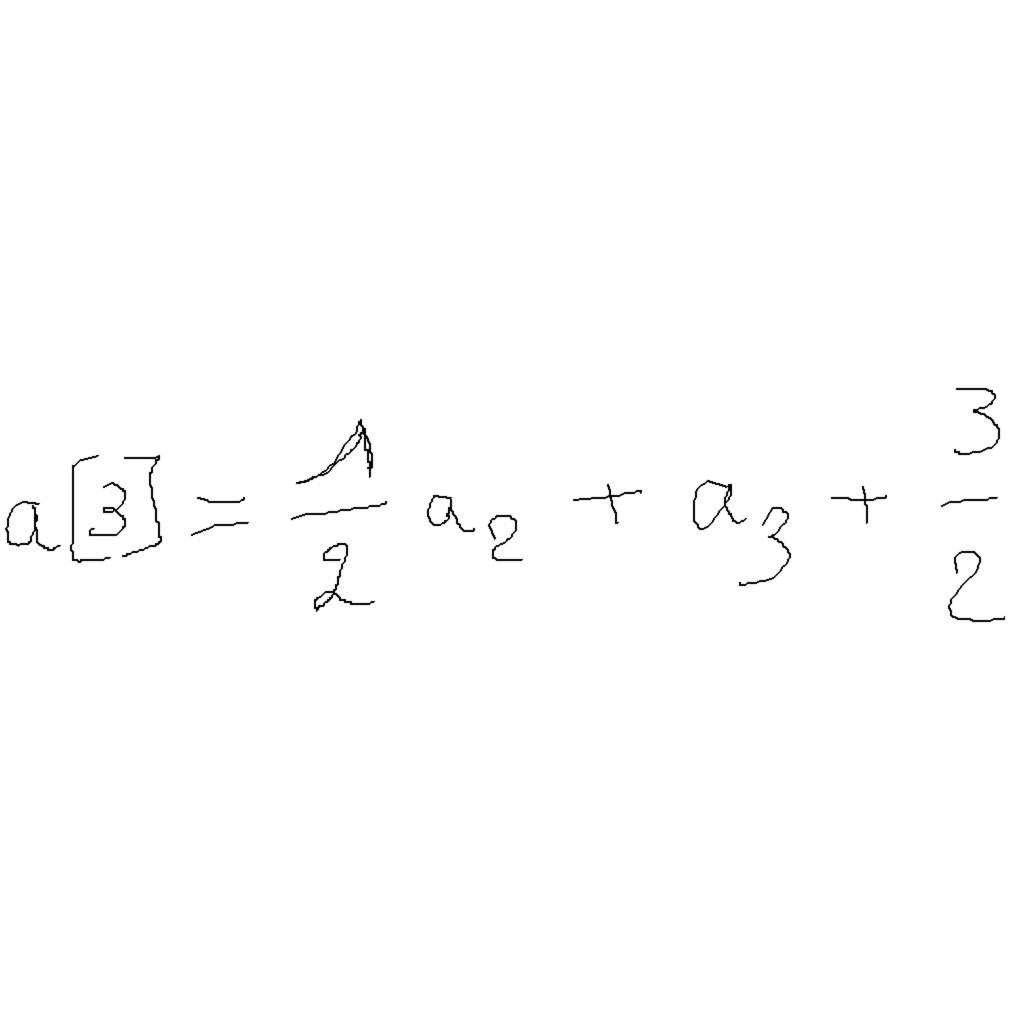 a[3] = \frac{1}{2} a_2 + a_3 + \frac{3}{2}